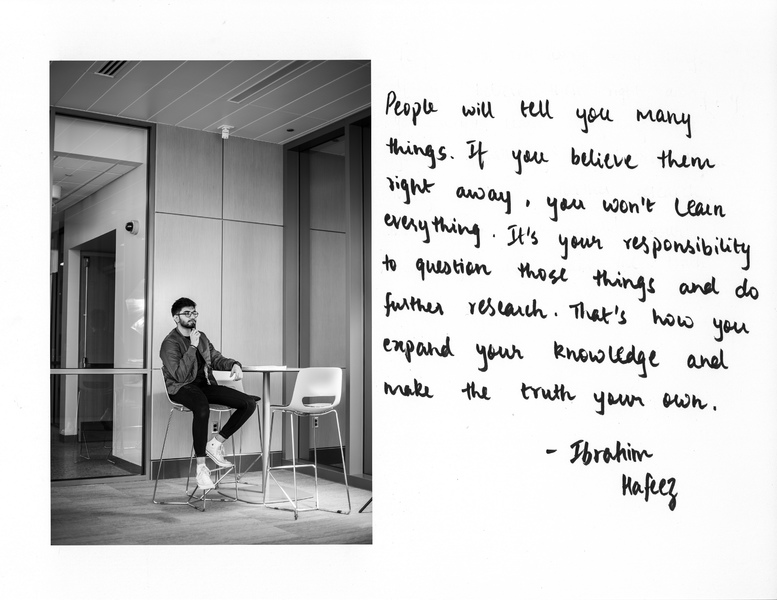 People will tell you many
things. If you believe them
right away, you won't learn
everything. It's your responsibility
to question those things and do
further research. That's how you
expand your knowledge and
make the truth your own.
- Ibrahim
Hafeez